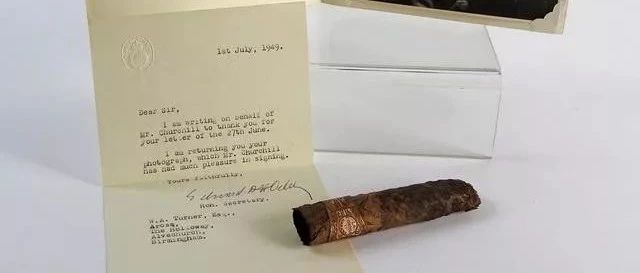 1st July, 1949.
Dear Sir,
I am writing on behalf of
Mr. Churchill to thank you for
your letter of the 27th June.
I am returning you your
photograph, which Mr. Churchill
has had much pleasure in signing.
Yours faithfully,
Hon. Secretary.
W.A. Turner, Esq.,
Arosa,
The Holloway,
Alvechurch,
Birmingham.